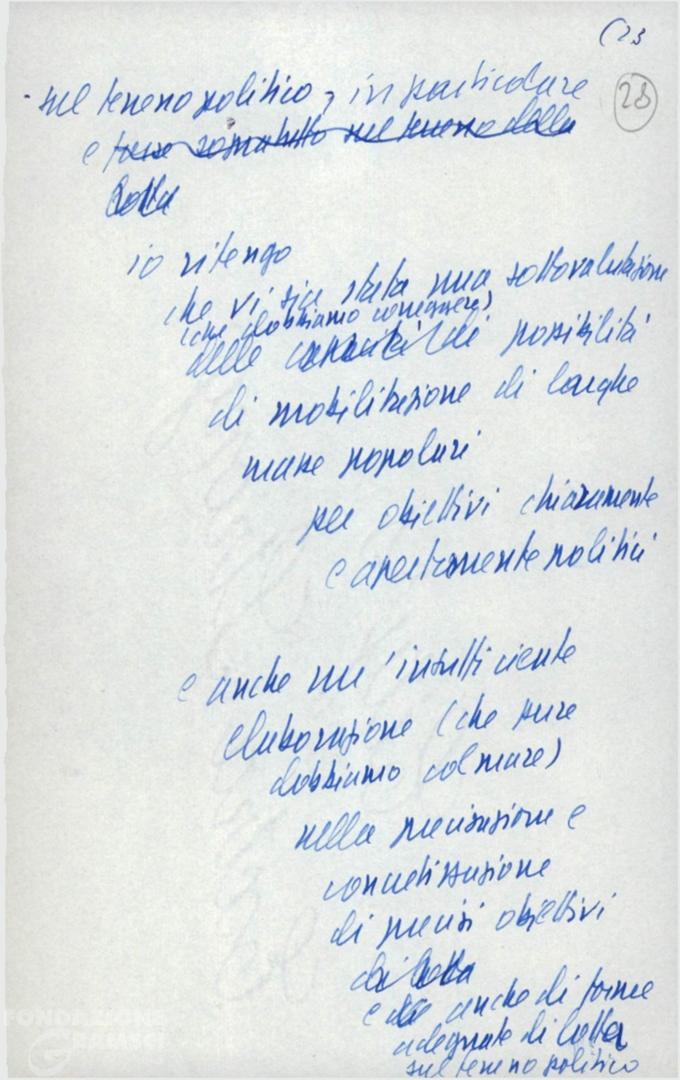 (23
28
- sul terreno politico, in particolare
e forse soprattutto sul terreno della
lotta
io ritengo
che vi sia stata una sottovalutazione
(che dobbiamo correggere)
delle capacità di possibilità
di mobilitazione di larghe
masse popolari
per obiettivi chiaramente
e apertamente politici
e anche un'insufficiente
elaborazione (che pure
dobbiamo colmare)
nella precisazione e
concretizzazione
di precisi obiettivi
di lotta
e anche di forme
adeguate di lotta
sul terreno politico
FONDAZIONE
GRAMSCI